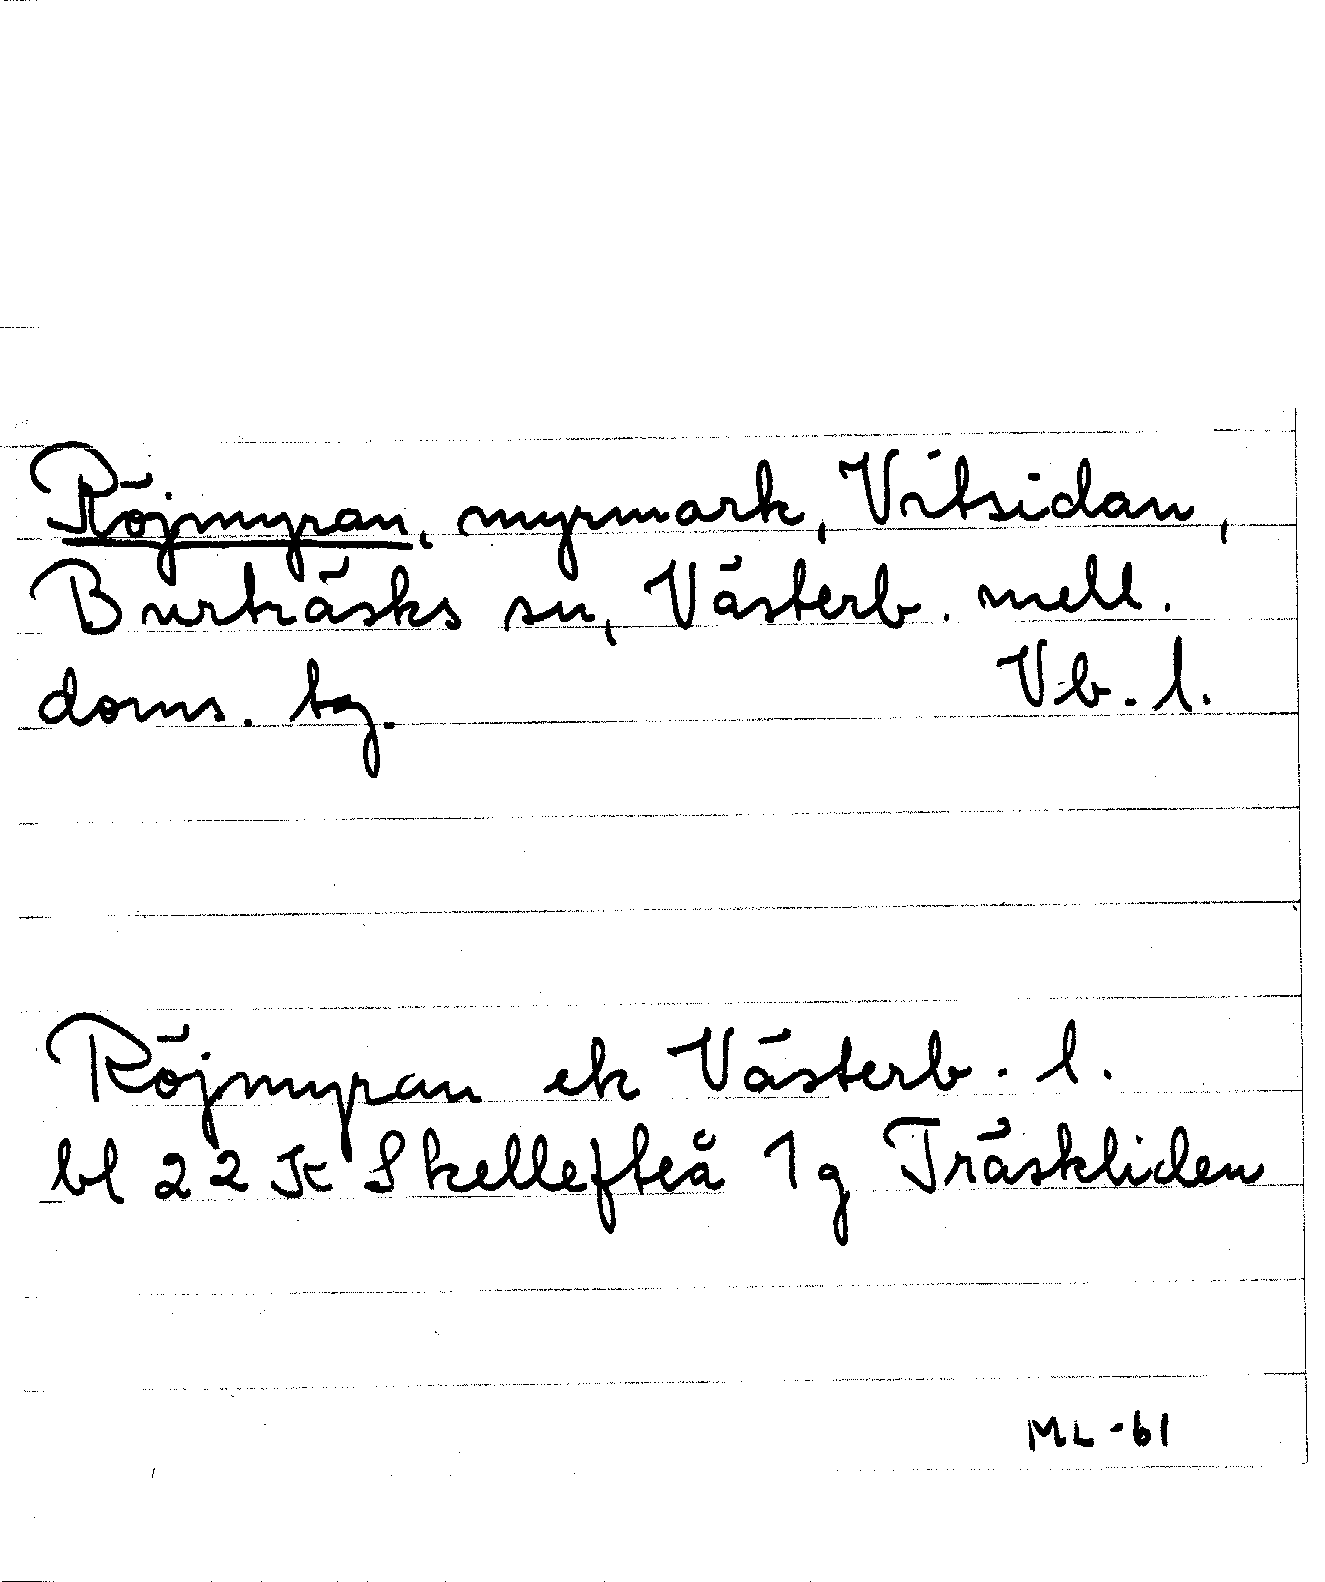 Röjmyran, myrmark, Vitsidan,
Burträsks sn, Västerb. mell.
doms. tg. Vb. l.
Röjmyran ek Västerb. l.
bl 22 K Skellefteå 1g Träskliden
ML -61